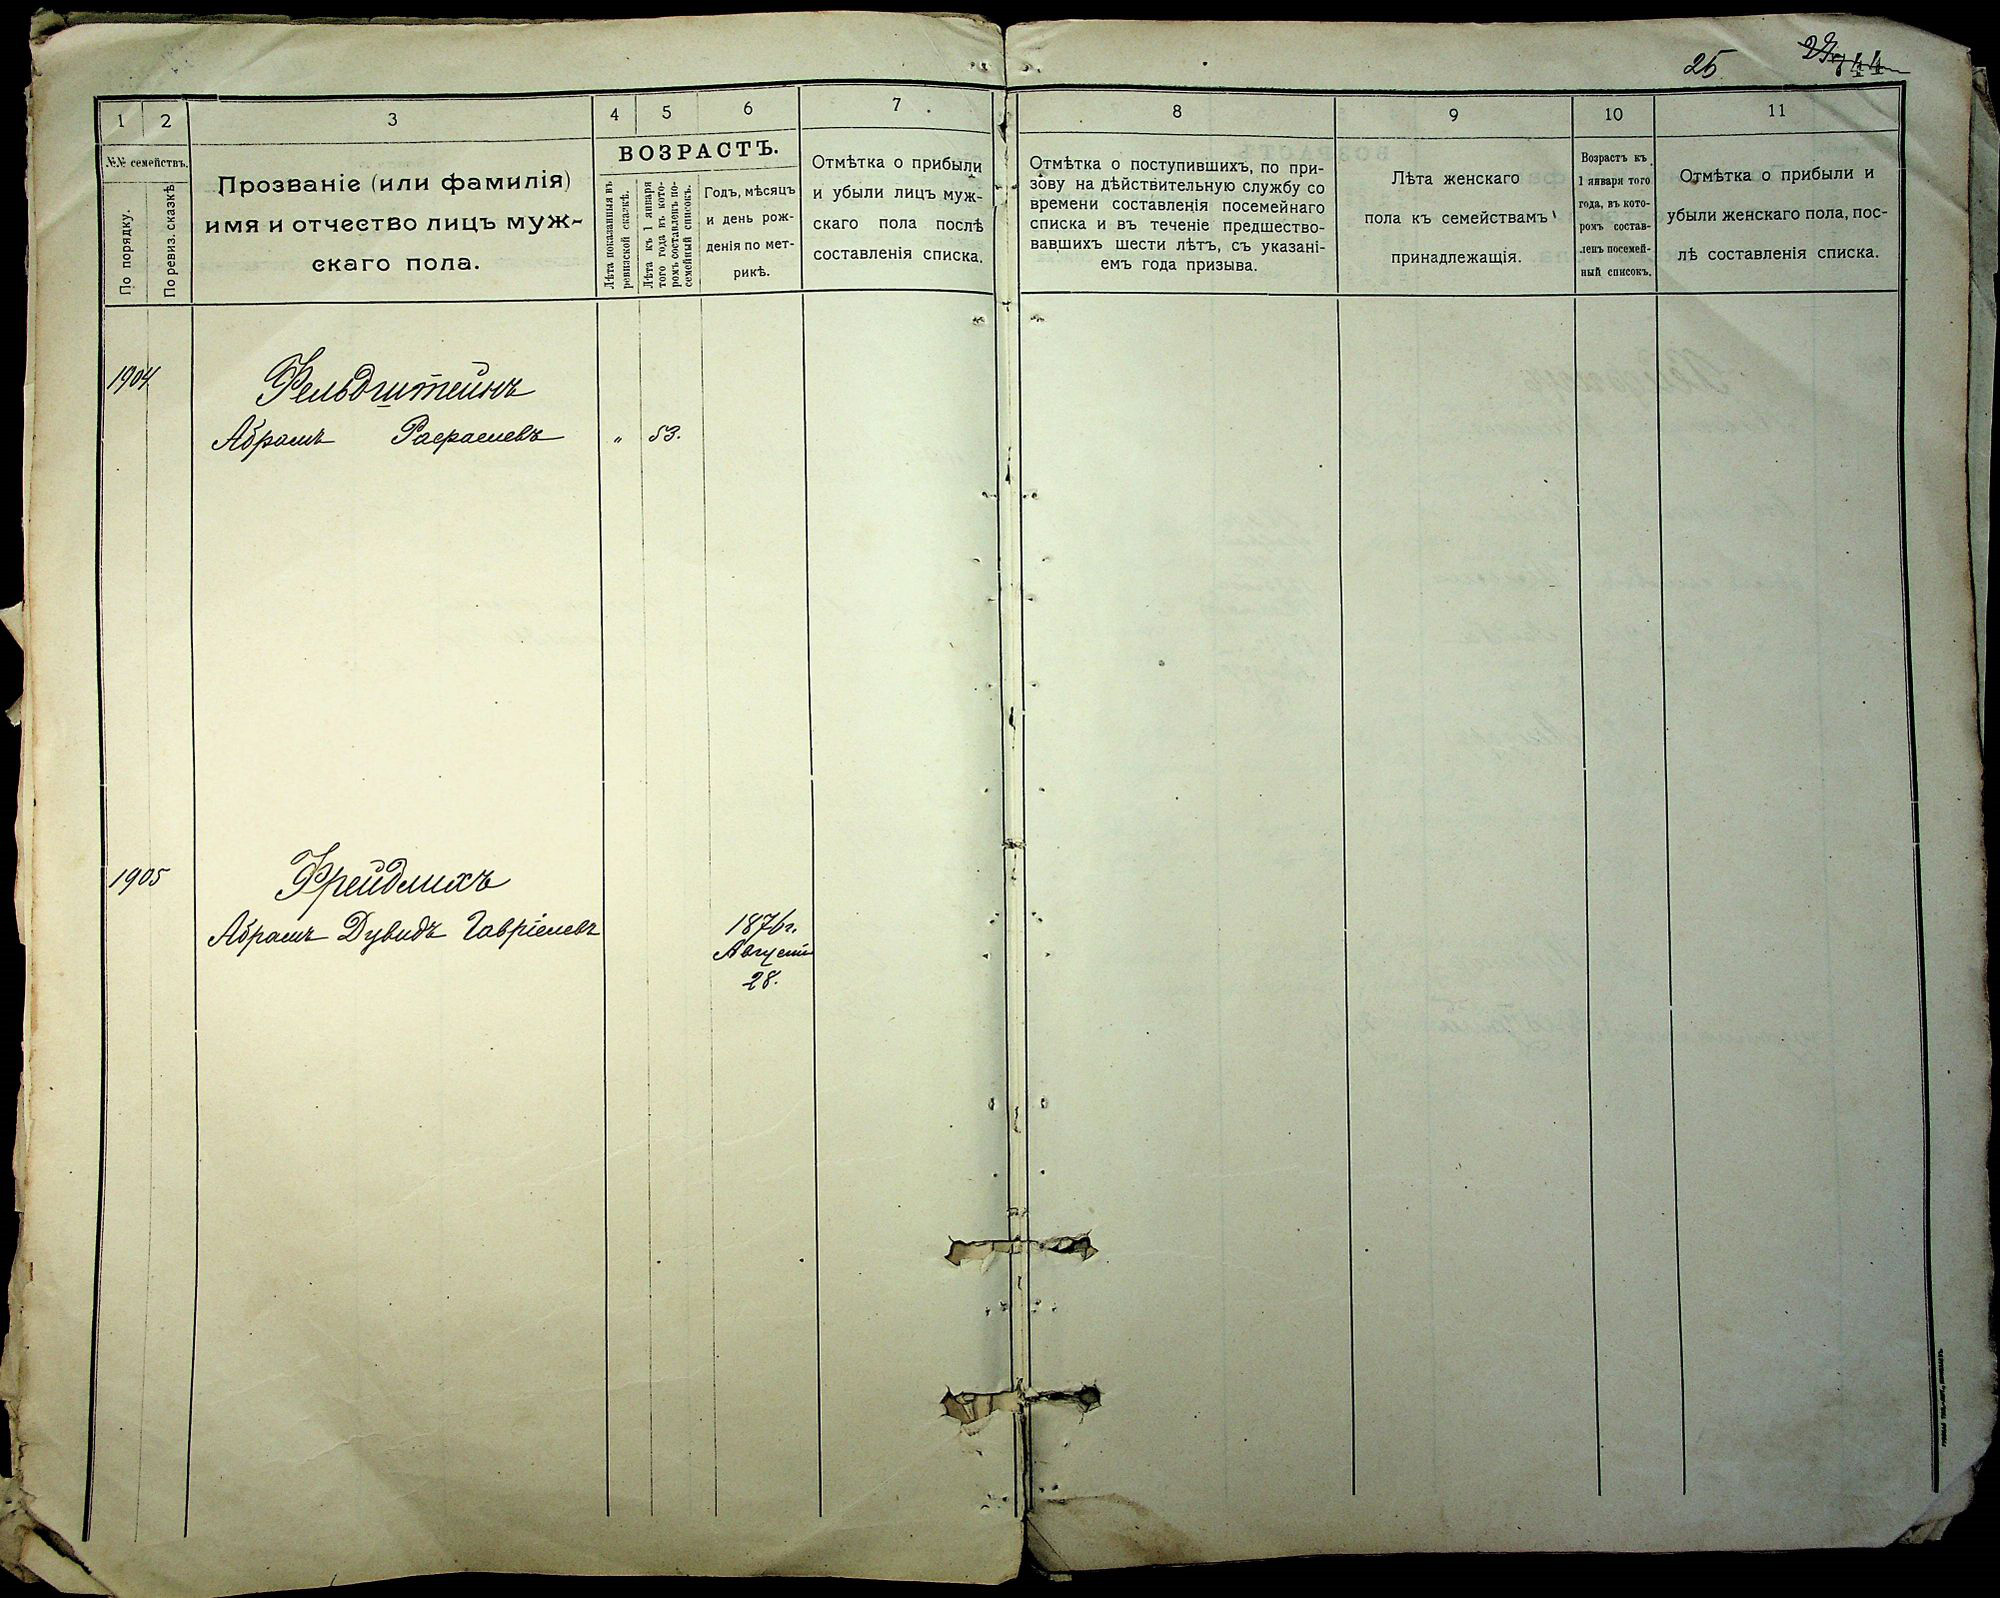 25 29 744
1 2 3 4 5 6 7 8 9 10 11
№№ семействъ.
По порядку.
По ревиз. сказкѣ
Прозваніе (или фамилія)
имя и отчество лицъ муж-
скаго пола.
ВОЗРАСТЪ.
Лѣта показанныя въ
ревизской сказкѣ.
Лѣта къ 1 января
того года въ кото-
ромъ составленъ по-
семейный списокъ.
Годъ, мѣсяцъ
и день рож-
денія по мет-
рикѣ.
Отмѣтка о прибыли
и убыли лицъ муж-
скаго пола послѣ
составленія списка.
Отмѣтка о поступившихъ, по при-
зову на дѣйствительную службу со
времени составленія посемейнаго
списка и въ теченіе предшество-
вавшихъ шести лѣтъ, съ указані-
емъ года призыва.
Лѣта женскаго
пола къ семействамъ
принадлежащія.
Возрастъ къ
1 января того
года, въ кото-
ромъ состав-
ленъ посемей-
ный списокъ.
Отмѣтка о прибыли и
убыли женскаго пола, пос-
лѣ составленія списка.
1904 Фельдштейнъ
Абрамъ Рафаелевъ „ 53.
1905 Фрейдлихъ
Абрамъ Дувидъ Гавріелевъ 1876 г.
Августа
28.